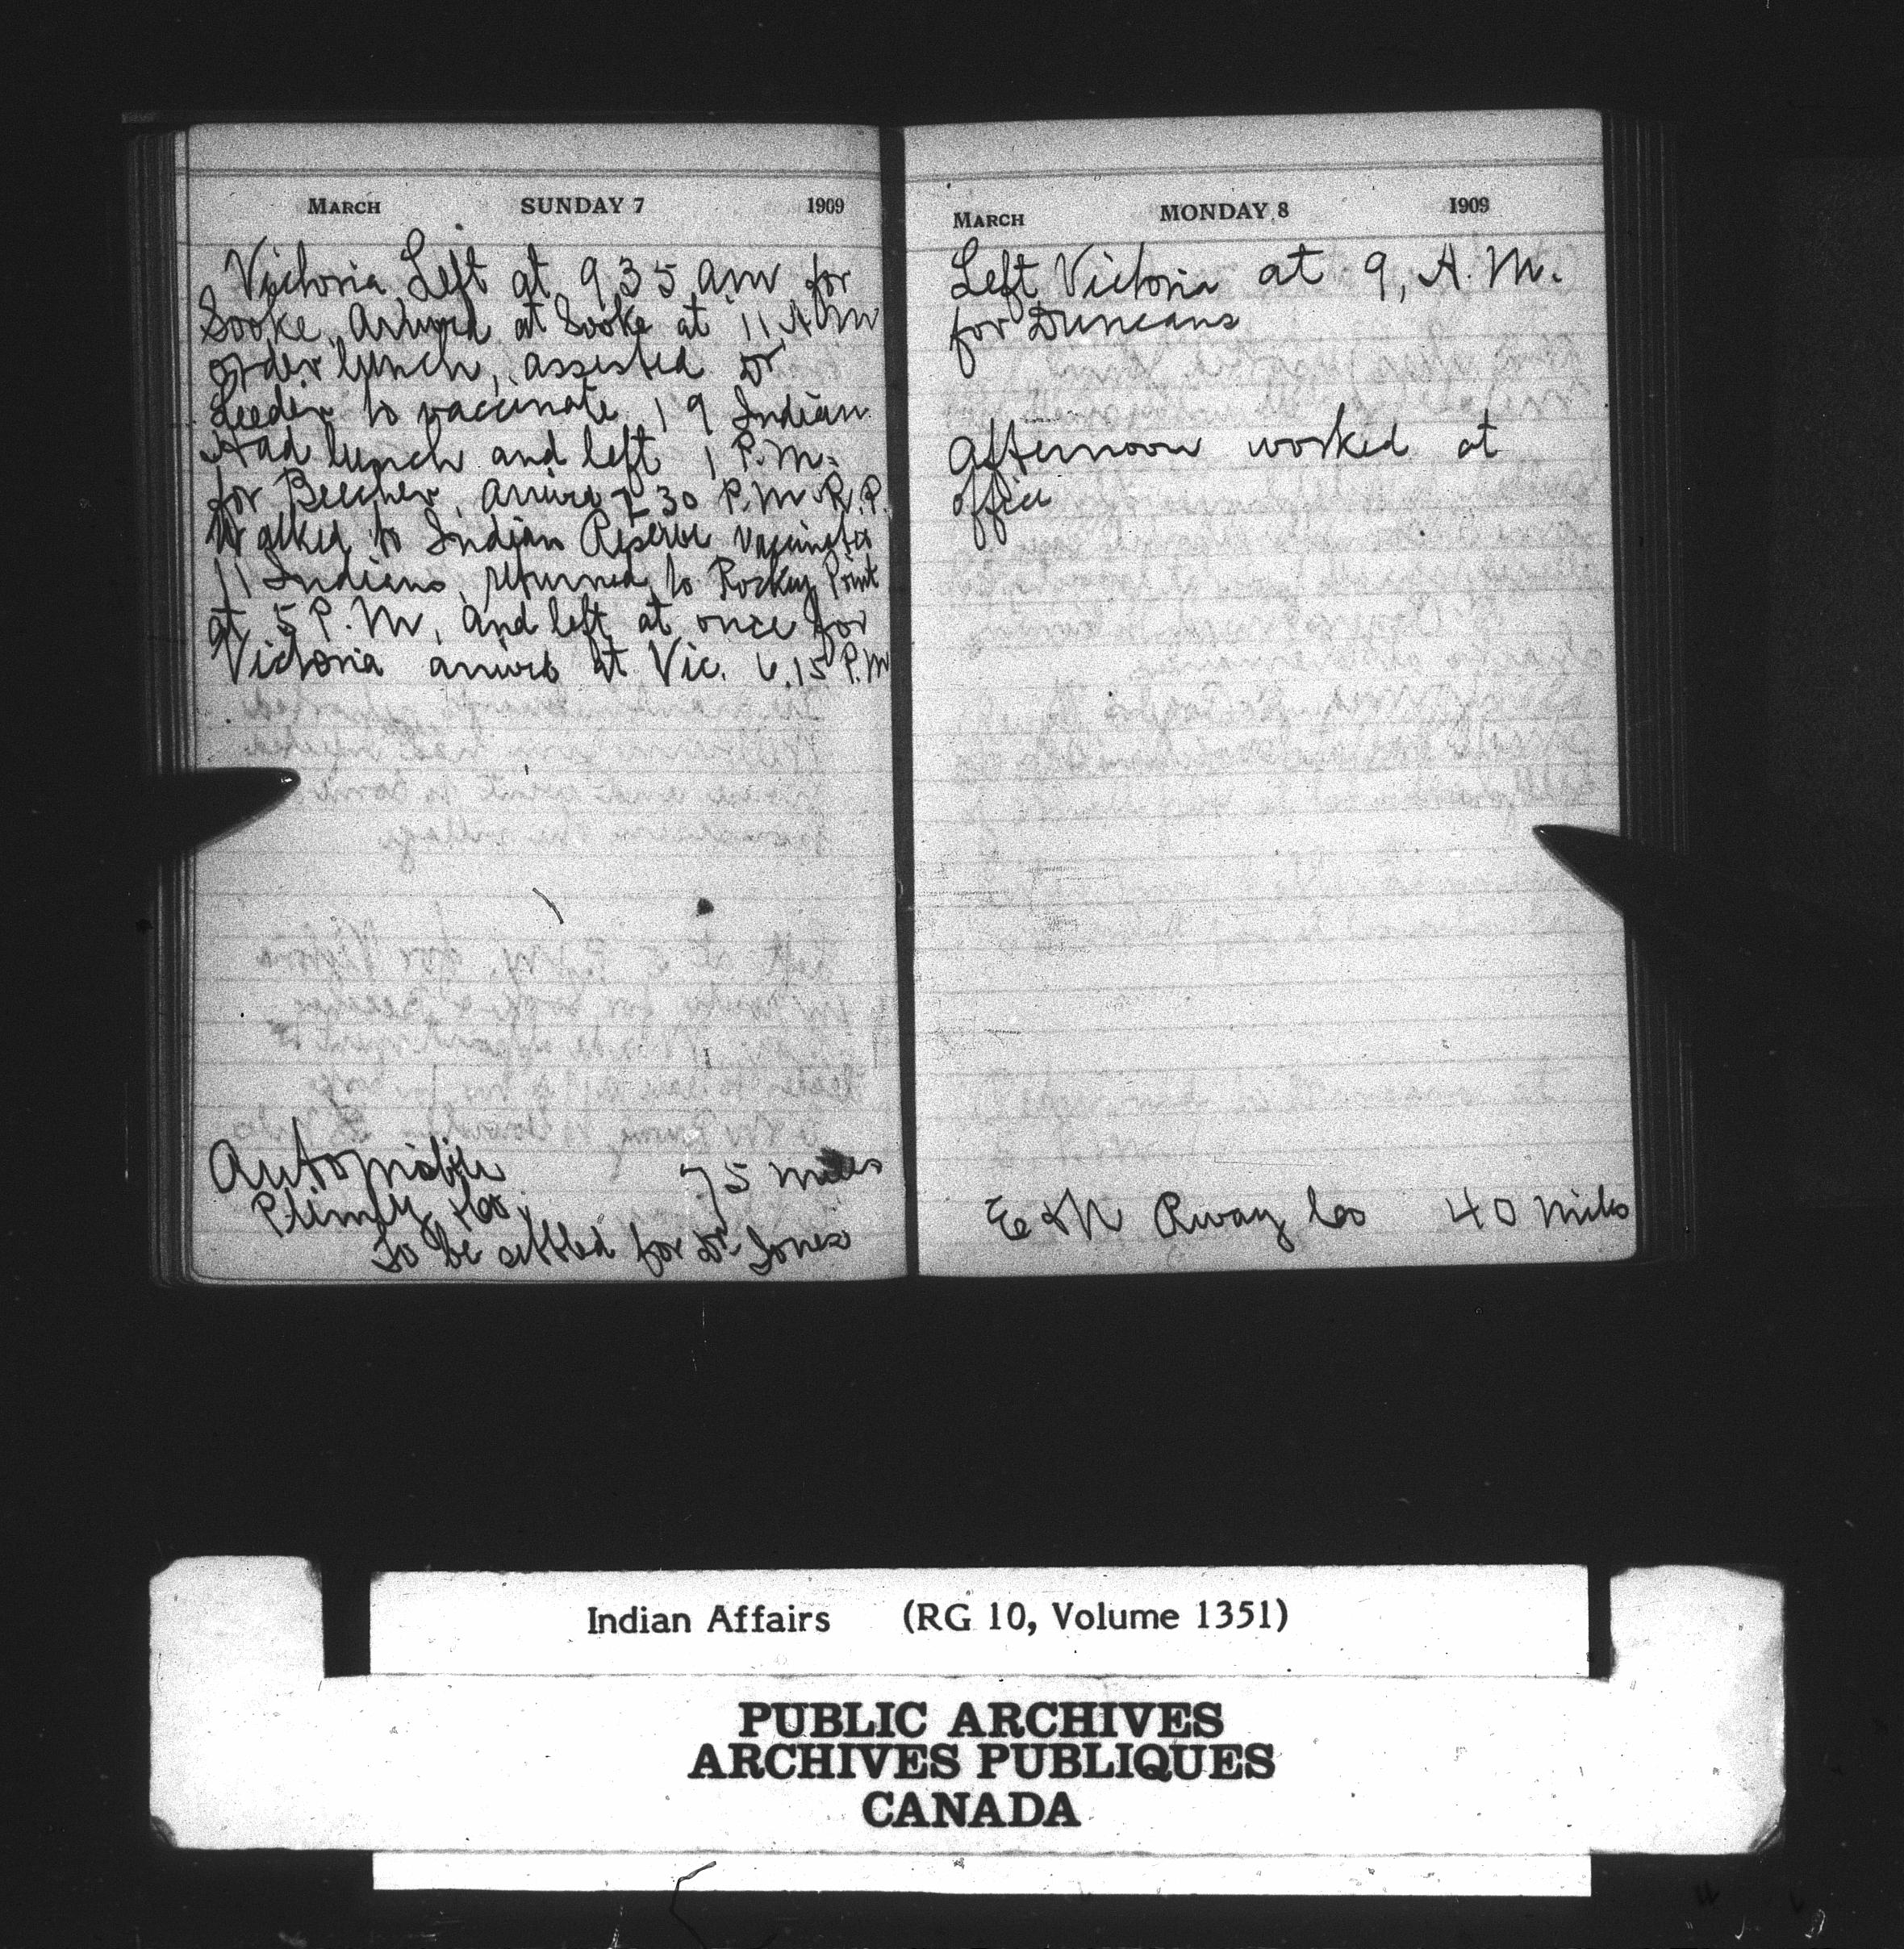 MARCH SUNDAY 7 1909
Victoria Left at 9 35 am for
Sooke, Arrived at Sooke at 11, A M
order lunch, assested Dr
to vaccinate 19 Indian
Had lunch and left 1 P.M.
for Beecher, arrive 2 30 P.M. R.P.
Walked to Indian Reserve Vaccinated
11 Indians, returned to Rocky Point
at 5 P.M, and left at once for
Victoria arrived at Vic. 6.15 P.M
Automobile 75 miles
Plimly &Co.
To be settled for Dr Jones
MARCH MONDAY 8 1909
Left Victoria at 9, A.M.
for Duncans
Afternoon worked at
office
E & N Rway Co 40 Miles
Indian Affairs (RG 10, Volume 1351)
PUBLIC ARCHIVES
ARCHIVES PUBLIQUES
CANADA